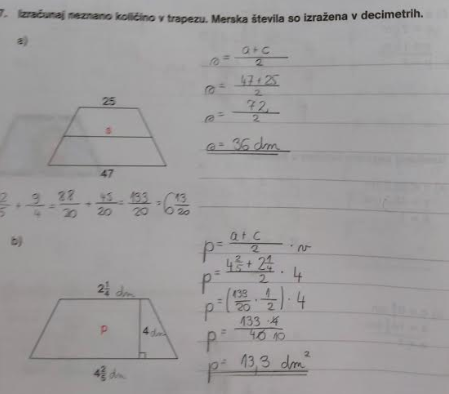 7. Izračunaj neznano količino v trapezu. Merska števila so izražena v decimetrih.
a)
25
s
47
s = a+c / 2
s = 47+25 / 2
s = 72 / 2
s = 36 dm
2/5 + 9/4 = 88/20 + 45/20 = 133/20 = 6 13/20
b)
2 1/4 dm
p
4 dm
4 2/5 dm
p = a+c / 2 · v
p = 4 2/5 + 2 1/4 / 2 · 4
p = (133/20 · 1/2) · 4
p = 133 · 4 / 40 10
p = 13,3 dm²